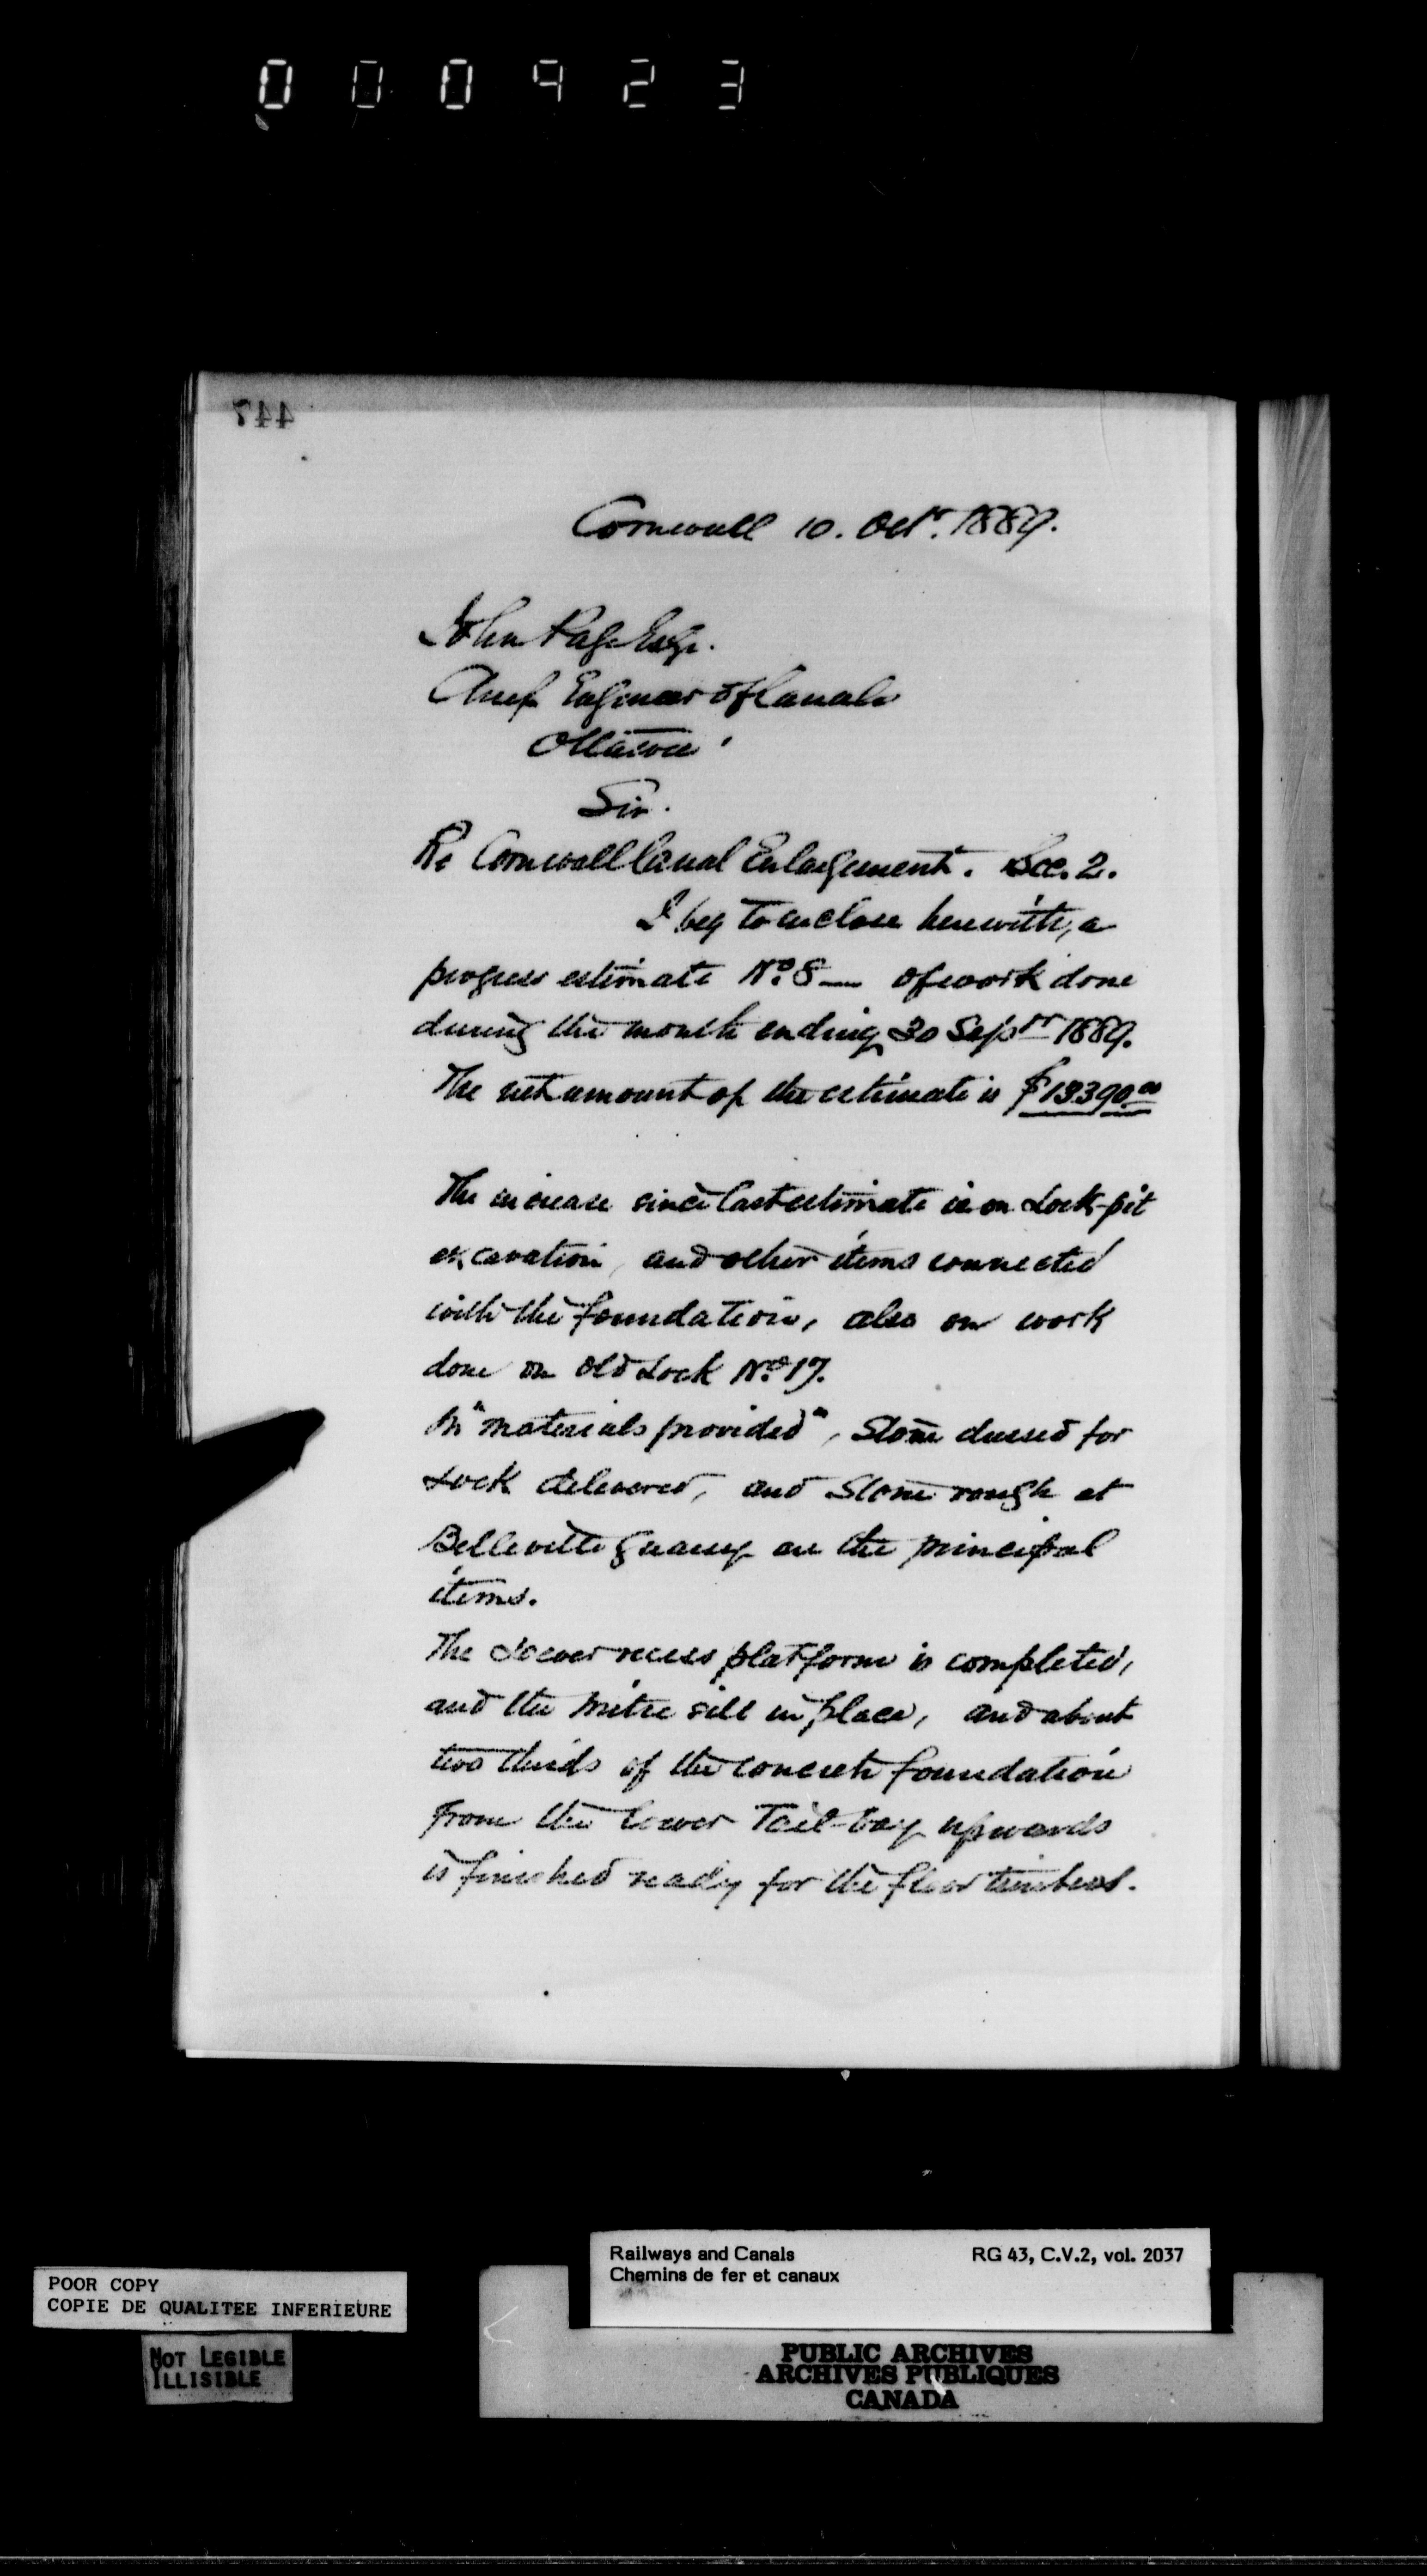 000923
447
Cornwall 10. Octr. 1889.
John Page Esqr.
Chief Engineer of Canals
Ottawa
Sir.
Re Cornwall Canal Enlargement. Sec. 2.
I beg to enclose herewith, a
progress estimate No. 8 — of work done
during the month ending 30 Septr 1889.
The net amount of the estimate is $13390.00
The increase since last estimate is on Lock-pit
excavation, and other items connected
with the foundation, also on work
done on Old Lock No. 17.
In "materials provided", Stone dressed for
Lock delivered, and Stone rough at
Belleville Quarry are the principal
items.
The Lower recess platform is completed,
and the mitre sill in place, and about
two thirds of the concrete foundation
from the lower Tail-bay upwards
is finished ready for the floor timbers.
Railways and Canals RG 43, C.V.2, vol. 2037
Chemins de fer et canaux
POOR COPY
COPIE DE QUALITEE INFERIEURE
NOT LEGIBLE
ILLISIBLE
PUBLIC ARCHIVES
ARCHIVES PUBLIQUES
CANADA